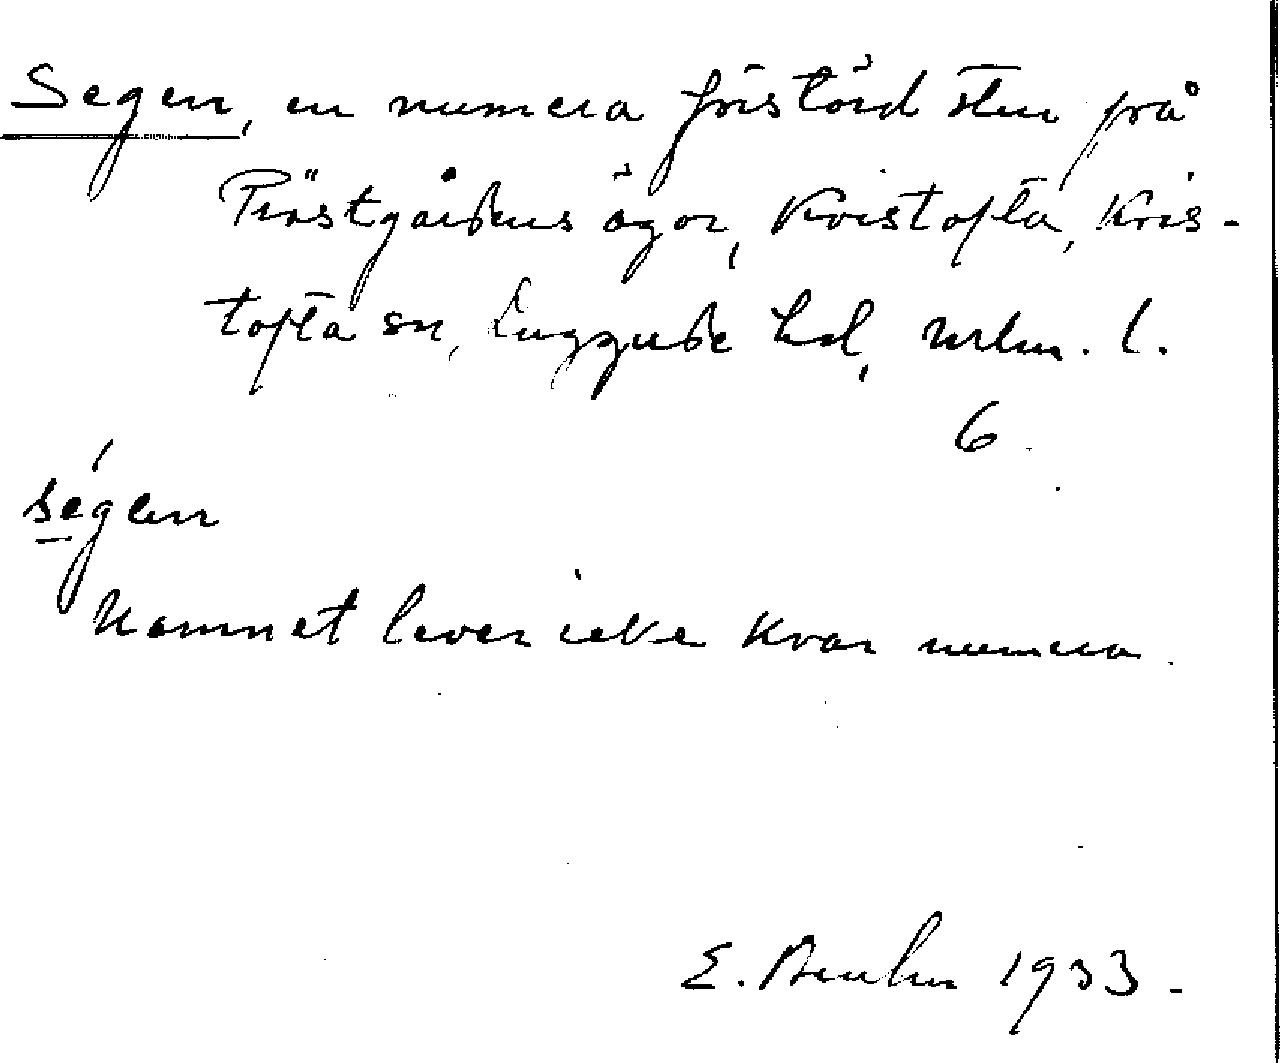 Segen, en numera förstörd sten på
Prästgårdens ägor, Kvistofta, Kvis-
tofta sn, Luggude hd, Mlm. l.
6
ségen
Namnet lever icke kvar numera.
E. 1933.